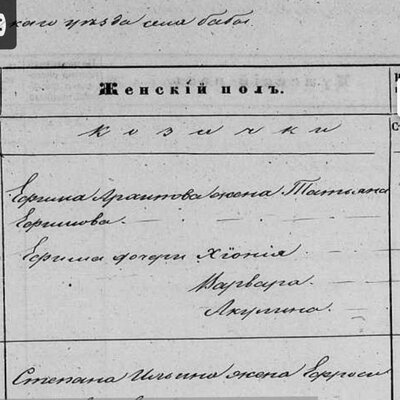 каго уѣзда села Бабы
Женскій полъ.
козички
Ефрима Архипова жена Татьяна
Ефимова.
Ефима дочери Хіонія.
Варвара.
Акулина.
Степана Ильина жена Ефроси